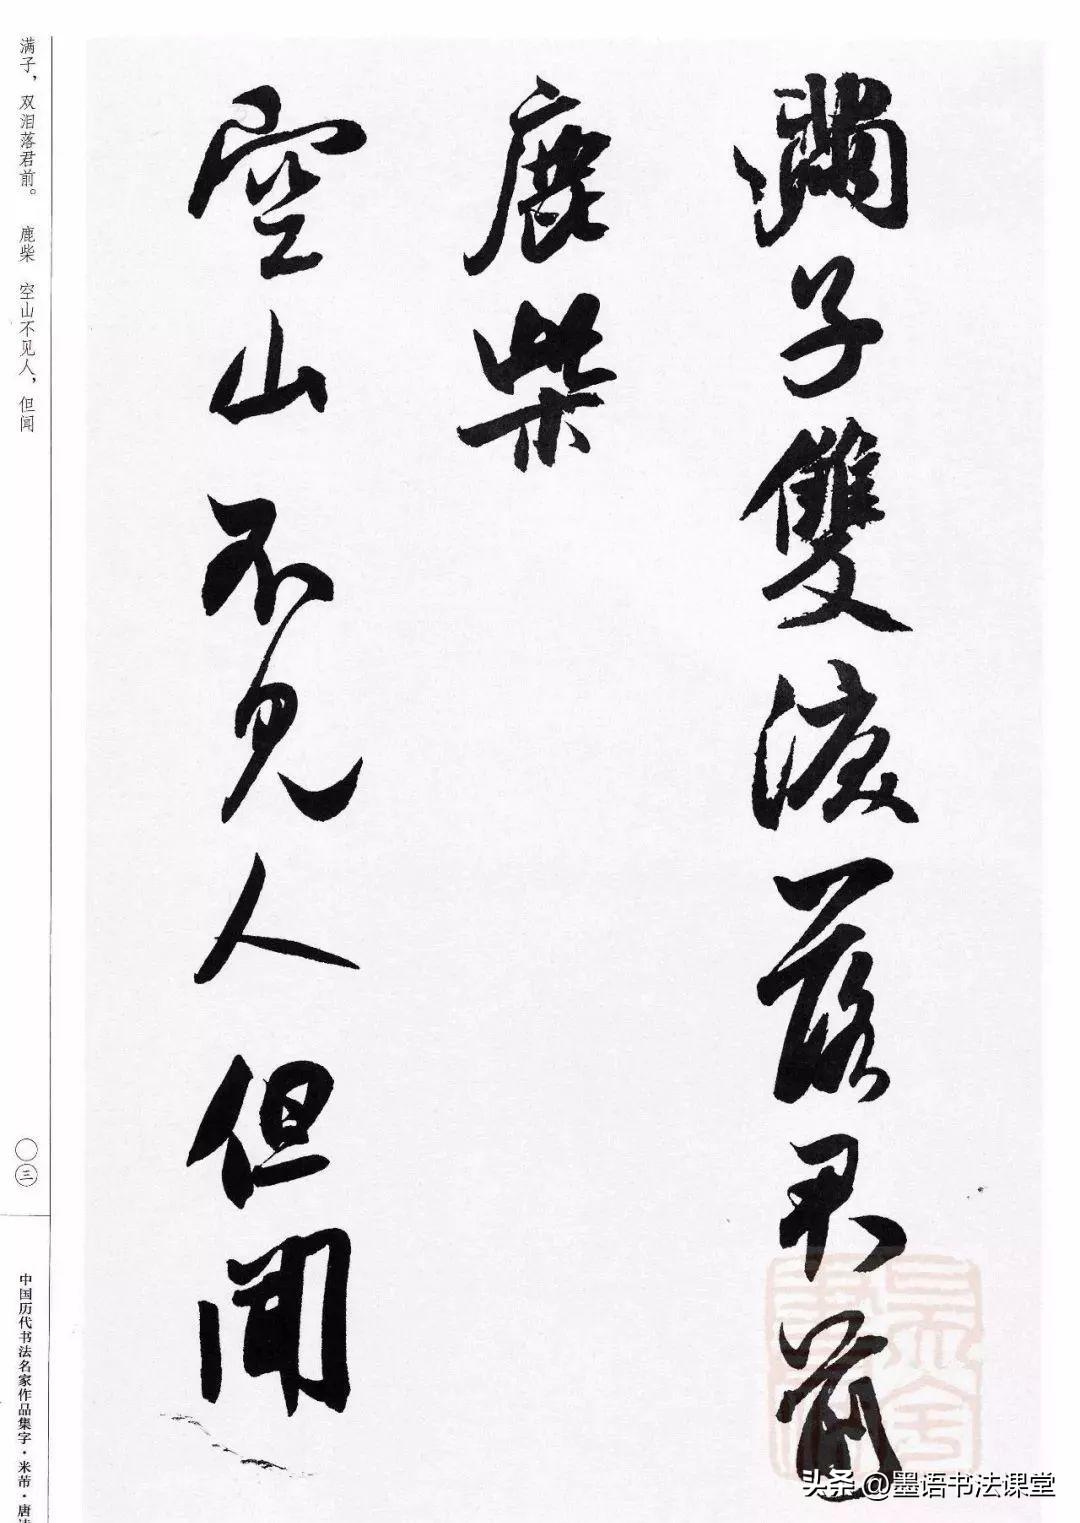 滿子雙淚落君前
鹿柴
空山不見人但聞
满子，双泪落君前。 鹿柴 空山不见人，但闻
〇三
中国历代书法名家作品集字·米芾·唐诗
头条 @墨语书法课堂